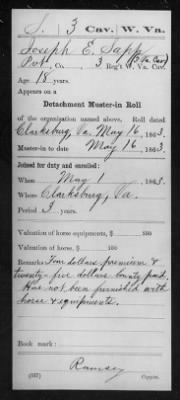 S. 3 Cav. W. Va.
Joseph E. Sapp
Pvt., Co. 3 Reg't W. Va. Cav. (3 Va. Cav)
Age 18 years.
Appears on a
Detachment Muster-in Roll
of the organization named above. Roll dated
Clarksburg, Va. May 16, 1863.
Muster-in to date May 16, 1863.
Joined for duty and enrolled:
When May 1, 1863.
Where Clarksburg, Va.
Period 3 years.
Valuation of horse equipments, $ 100
Valuation of horse, $ 100
Remarks Four dollars premium &
twenty-five dollars bounty paid.
Has not been furnished with
horse & equipments.
Book mark:
Ramsey
(357) Copyist.